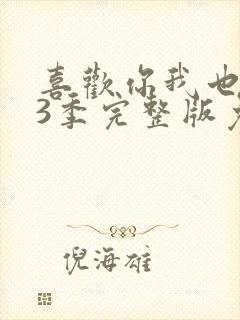 喜歡你我也
3季完整版
倪海雄